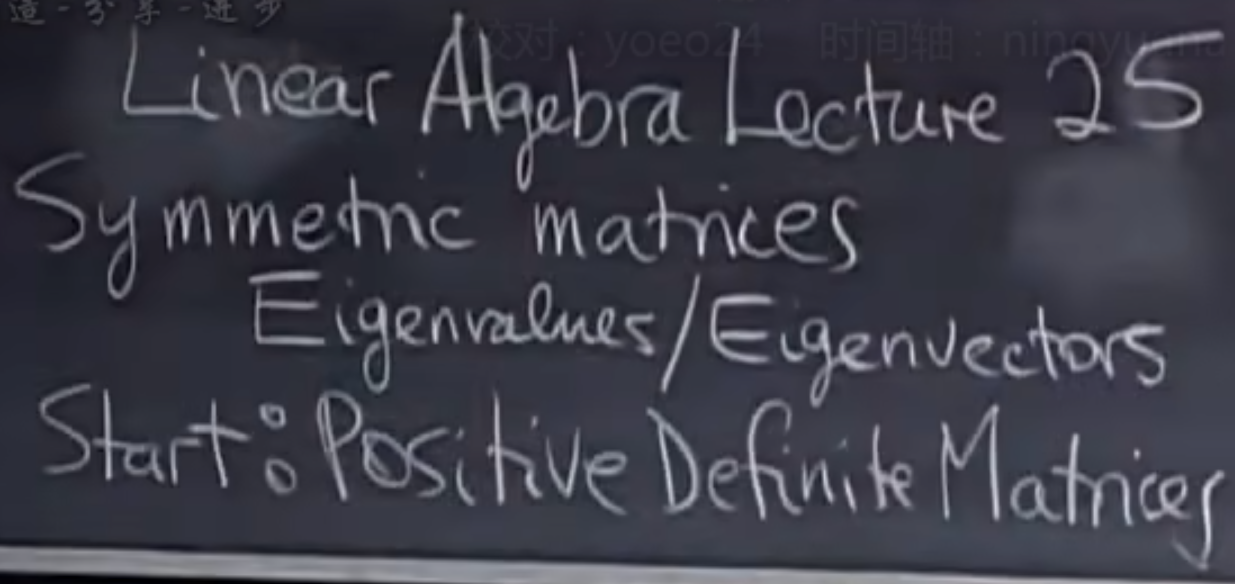 道-分享-进步
校对：yoeo24 时间轴：ningyu
Linear Algebra Lecture 25
Symmetric matrices
Eigenvalues/Eigenvectors
Start: Positive Definite Matrices